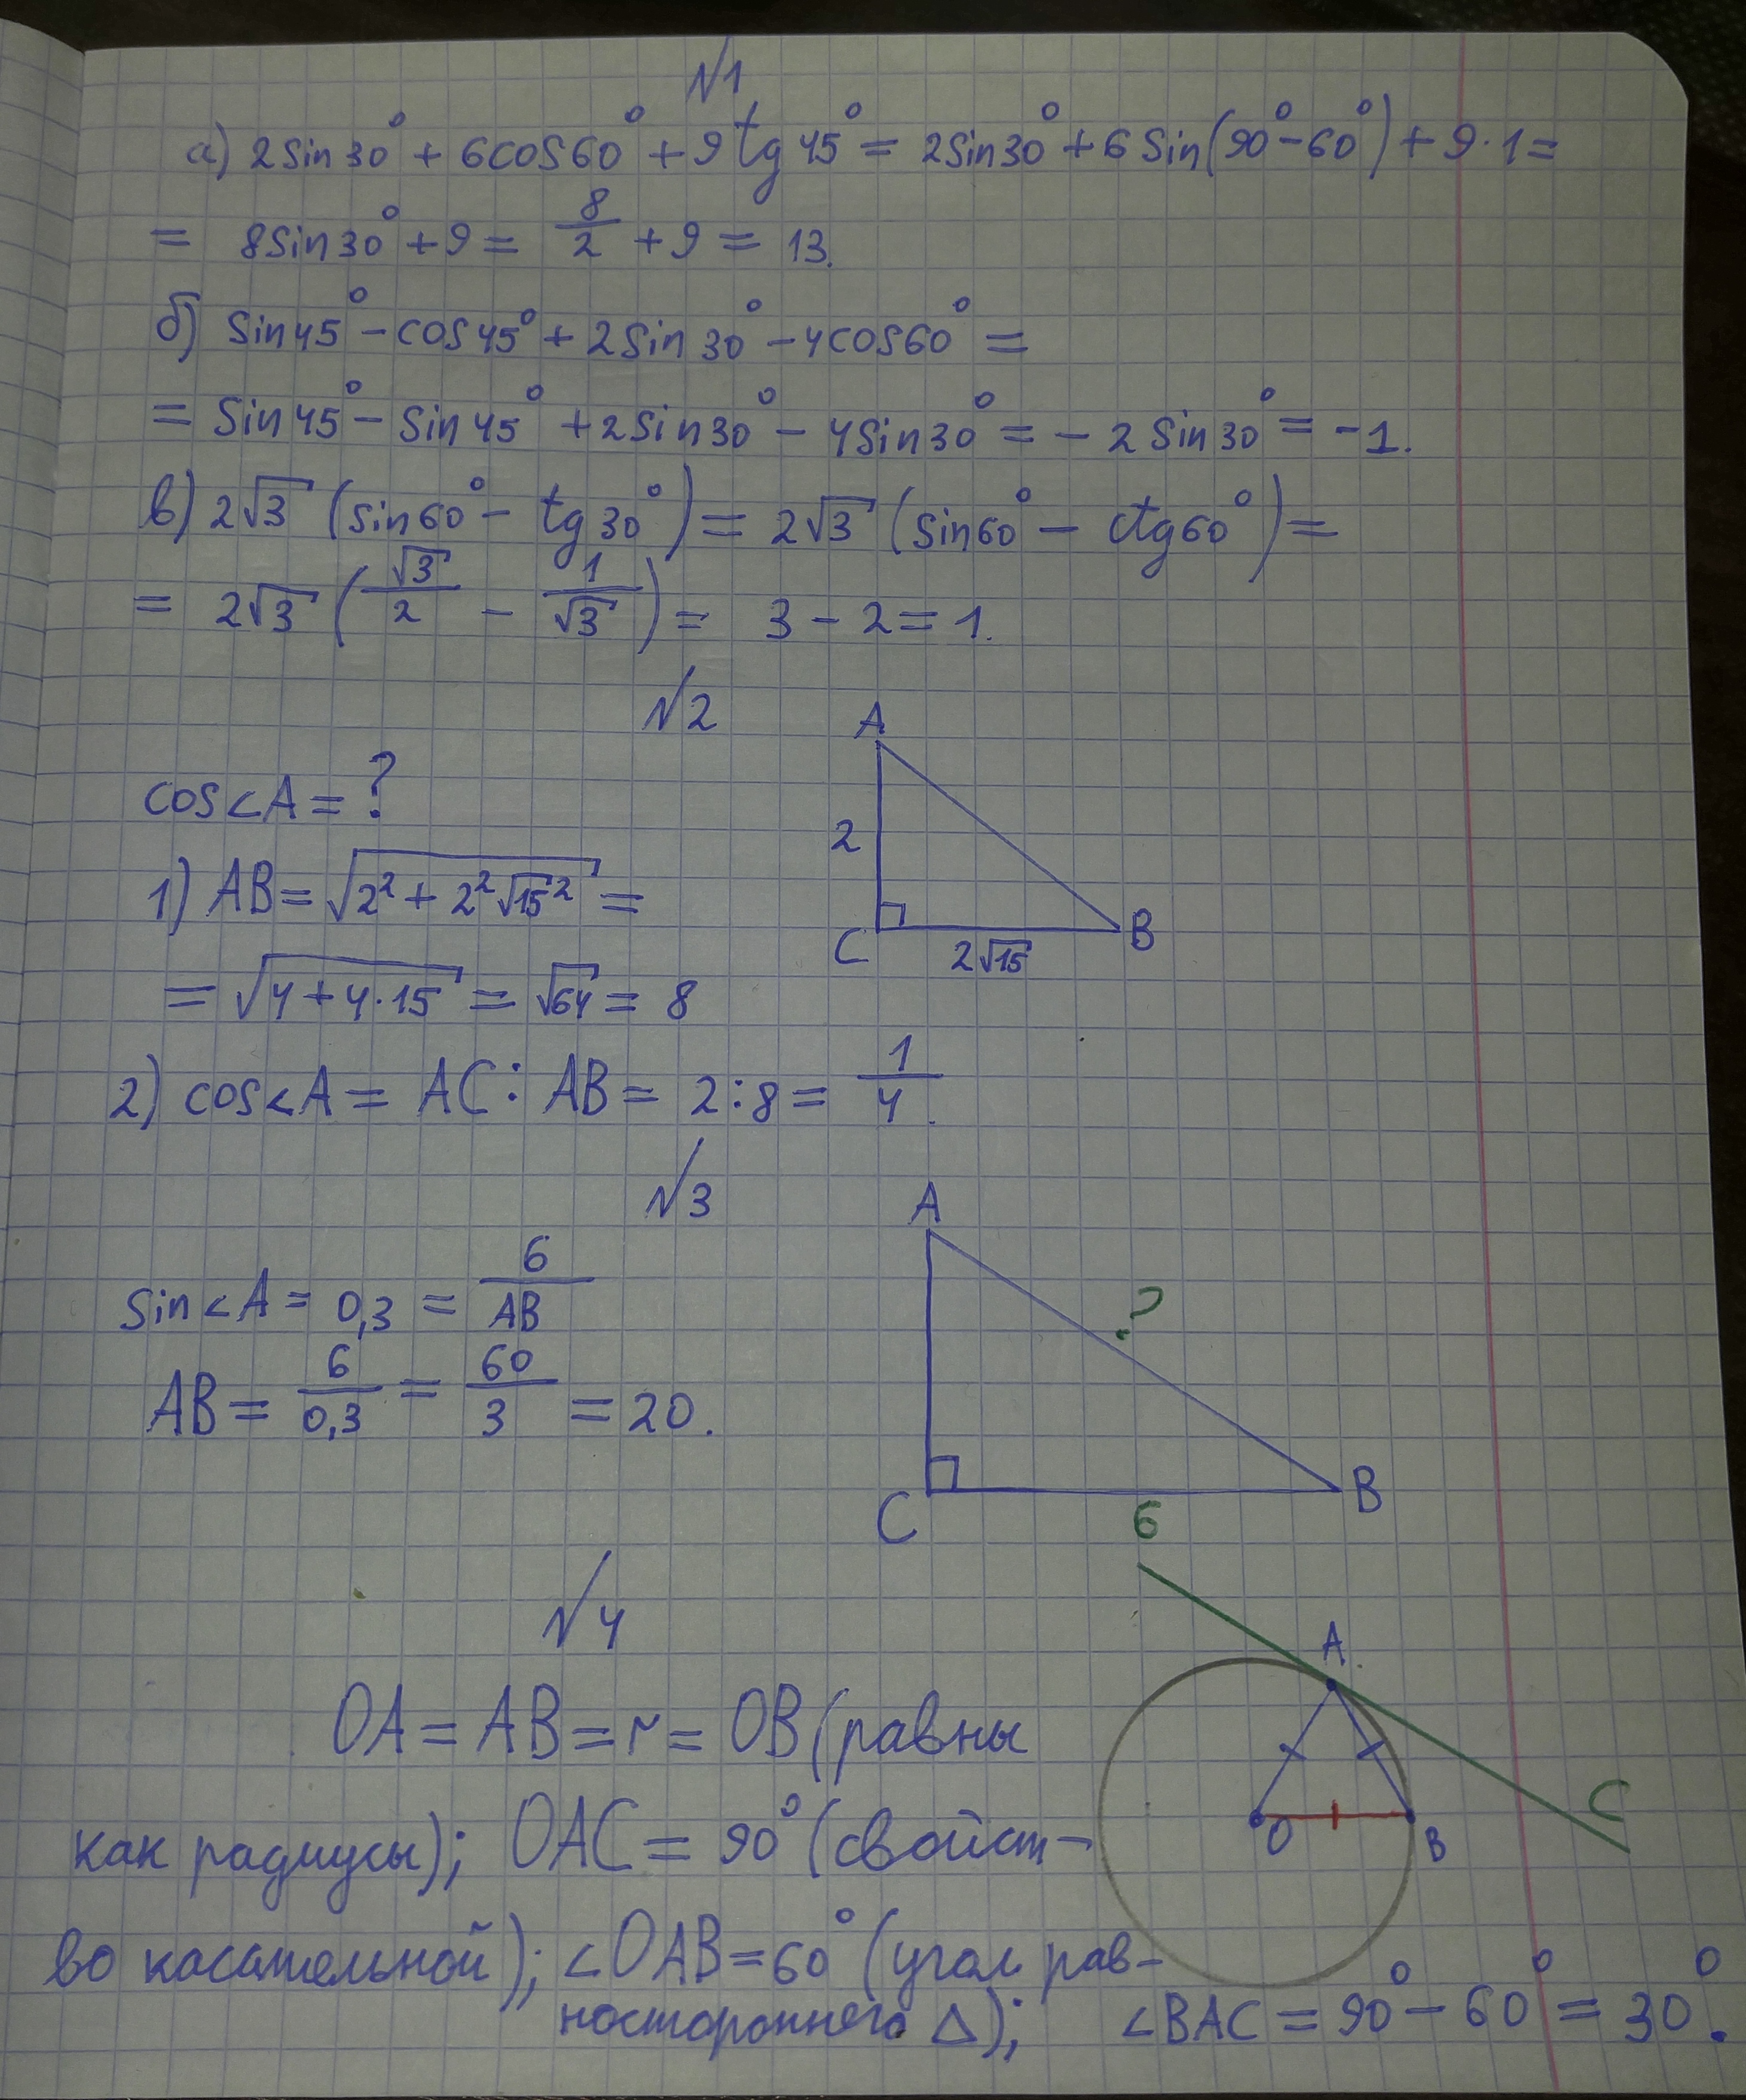 №1
а) 2sin30° + 6cos60° + 9tg45° = 2sin30° + 6sin(90°-60°) + 9·1 =
= 8sin30° + 9 = 8/2 + 9 = 13.
б) sin45° - cos45° + 2sin30° - 4cos60° =
= sin45° - sin45° + 2sin30° - 4sin30° = -2sin30° = -1.
в) 2√3 (sin60° - tg30°) = 2√3 (sin60° - ctg60°) =
= 2√3 (√3/2 - 1/√3) = 3 - 2 = 1.
№2
cos∠A = ?
A
2
C
B
2√15
1) AB = √(2² + 2²√15²) =
= √(4 + 4·15) = √64 = 8
2) cos∠A = AC : AB = 2:8 = 1/4.
№3
sin∠A = 0,3 = 6/AB
AB = 6/0,3 = 60/3 = 20.
A
?
C
B
6
№4
OA = AB = r = OB (равны
как радиусы); OAC = 90° (свойст-
во касательной); ∠OAB = 60° (угол рав-
ностороннего Δ); ∠BAC = 90° - 60° = 30°.
A.
C
O
B